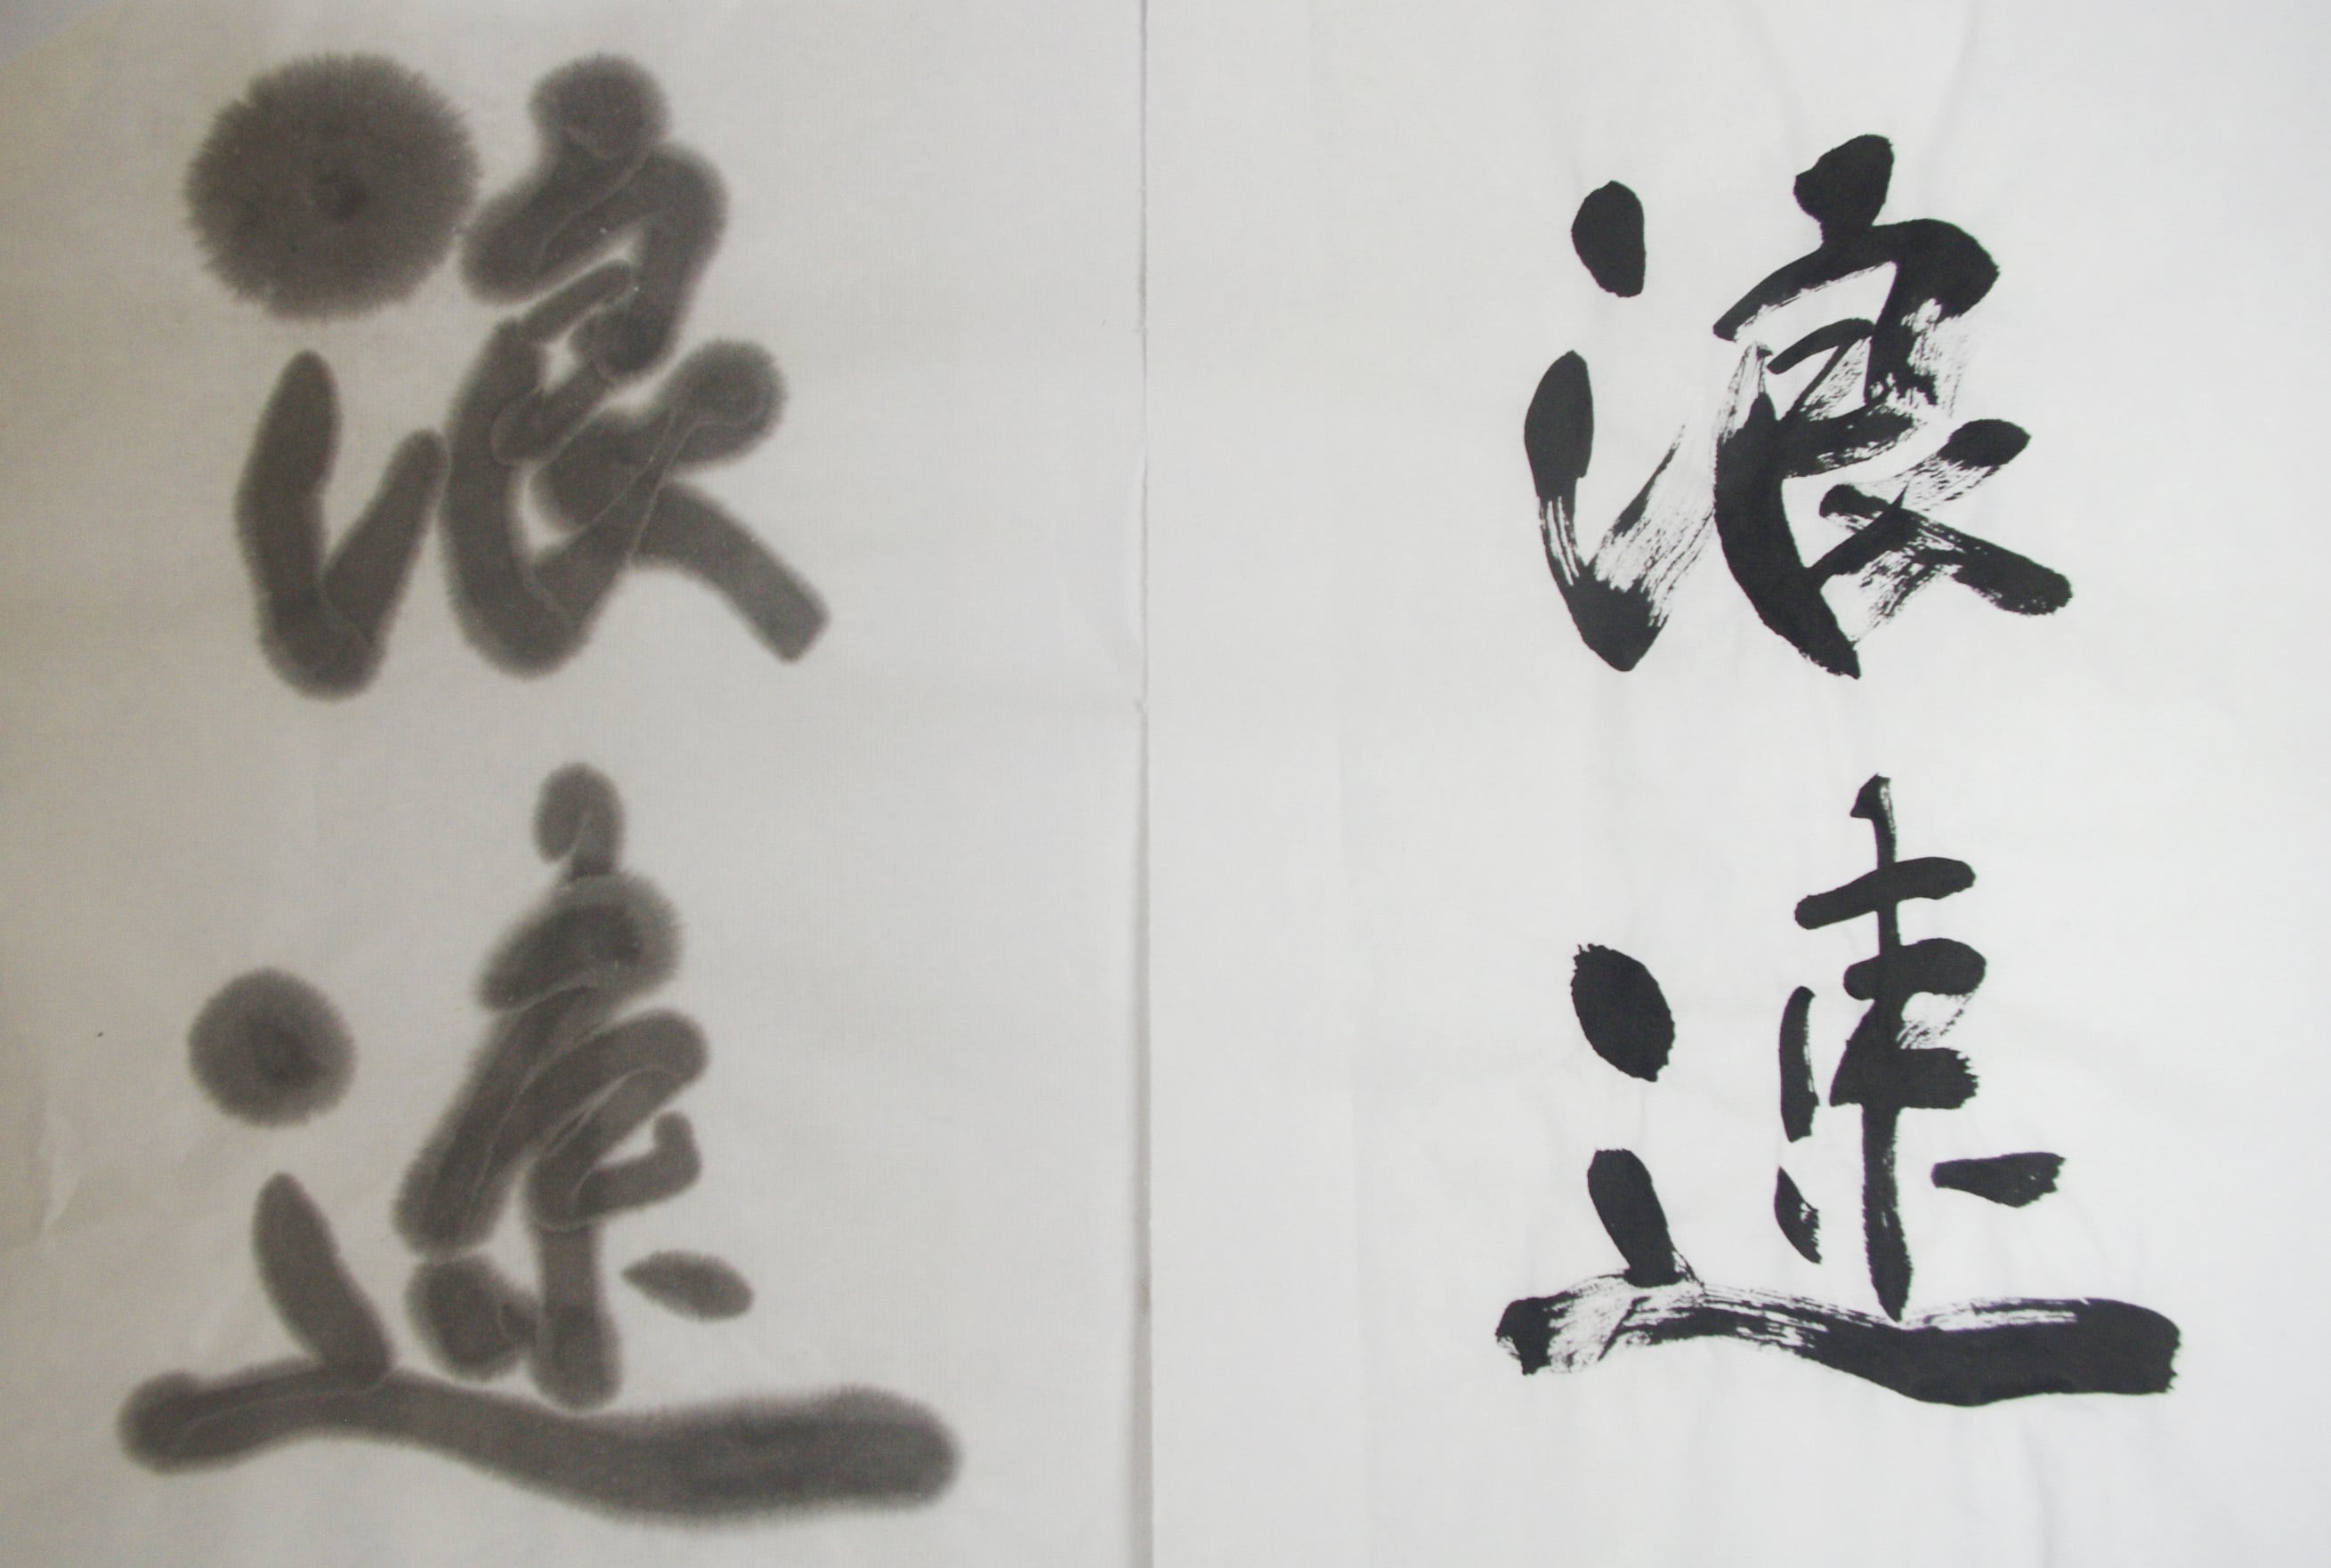 浪速
浪速